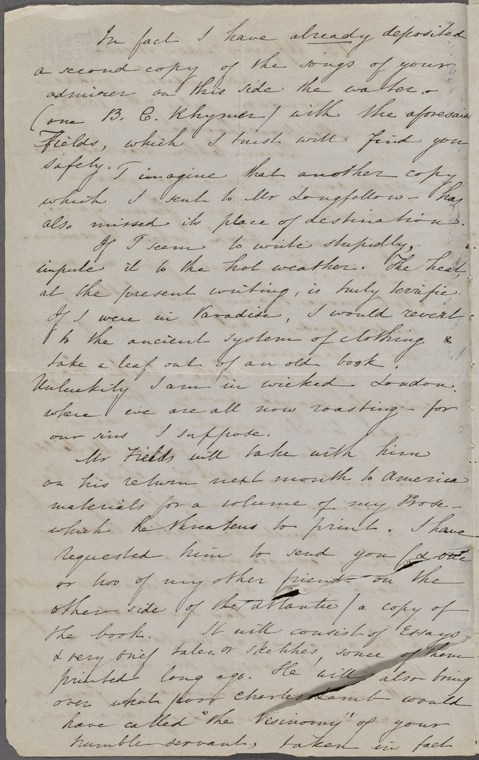 In fact I have already deposited
a second copy of the songs of your
admirer on this side the water -
(one B. C. Rhymer) with the aforesaid
Fields, which I trust will find you
safely.
I imagine that another copy
which I sent to Mr Longfellow - has
also missed its place of destination.
If I seem to write stupidly,
impute it to the hot weather. The heat
at the present writing, is truly terrific.
If I were in Paradise, I would revert
to the ancient system of clothing &
take a leaf out of an old book.
Unluckily I am in wicked London.
where we are all now roasting - for
our sins I suppose.
Mr Fields will take with him
on his return next month to America
materials for a volume of my Prose -
which he threatens to print. I have
requested him to send you (& one
or two of my other friends on the
other side of the atlantic) a copy of
the book. It will consist of Essays,
& very brief tales or sketches, some of them
printed long ago. He will also bring
over what poor Charles Lamb would
have called "the Visinomy" of your
humble servant, taken in fact